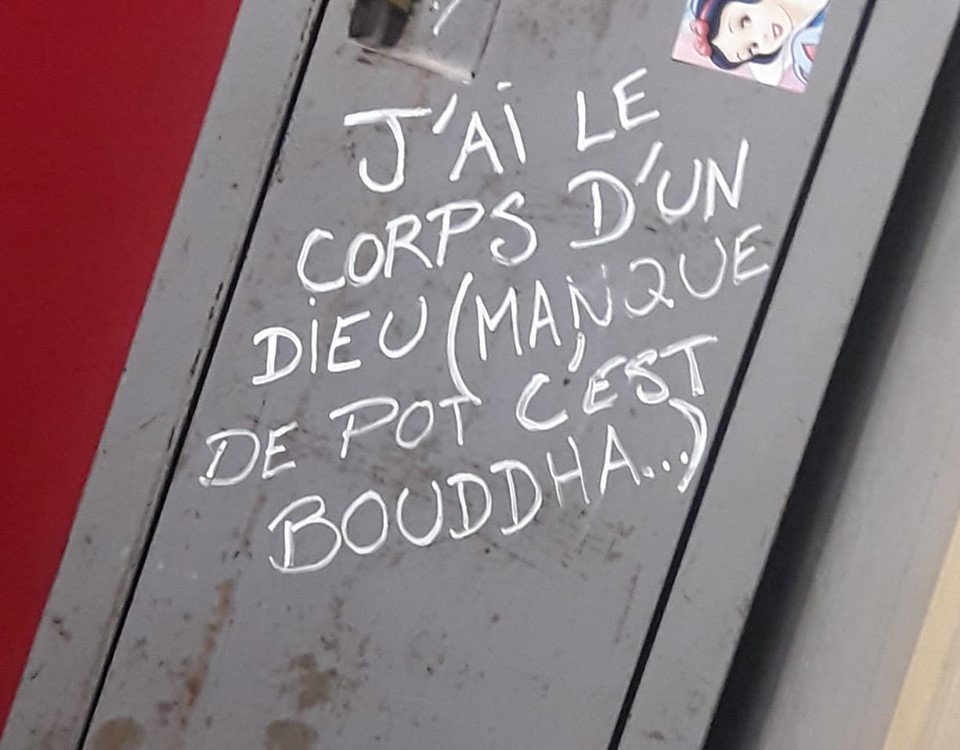 J'AI LE
CORPS D'UN
DIEU (MANQUE
DE POT C'EST
BOUDDHA...)